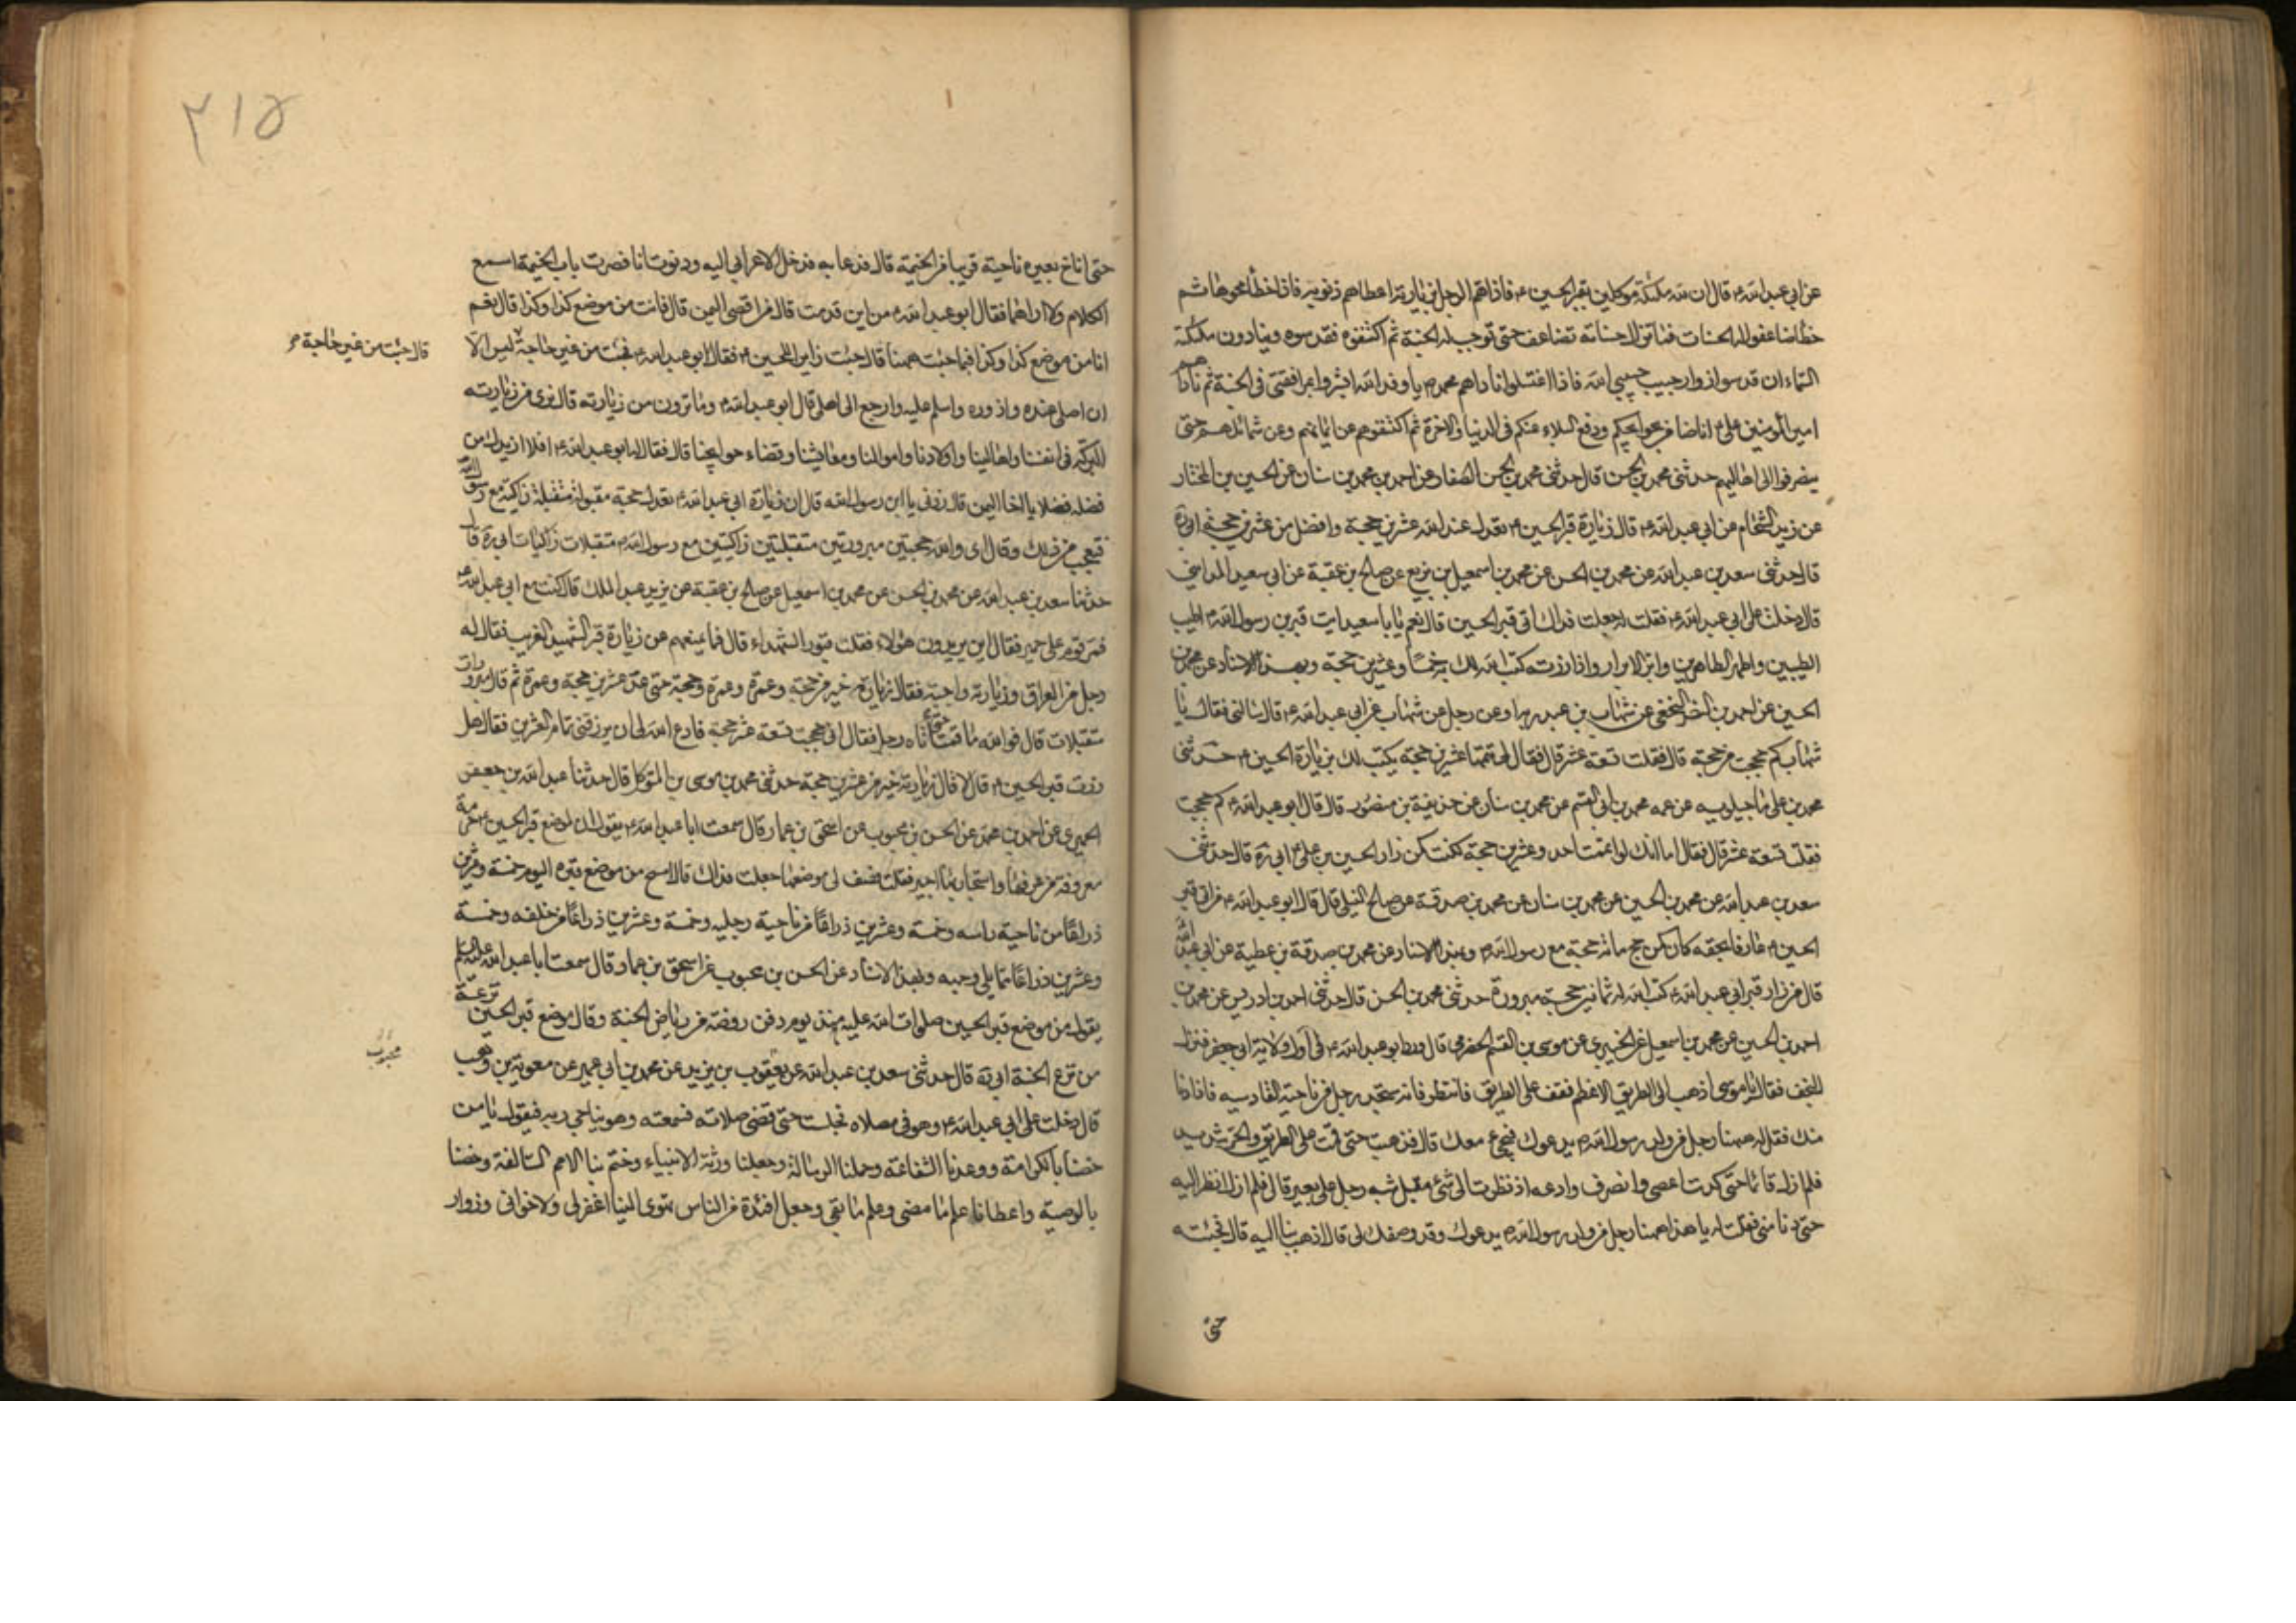 عن ابی عبد الله ع قال ان لله ملئکة موکلین بقبر الحسین ع فاذا هم الرجل بزیارته اعطاهم ذنوبه فاذا خطا محوها ثم
خطا ضاعفوا له الحسنات فما تزال حسناته تضاعف حتی توجب له الجنة ثم اکتنفوه فقدسوه وینادون ملئکة
السماء ان قدسوا زوار حبیب حبیب الله فاذا اغتسلوا ناداهم محمد ص یا وفد الله ابشروا بمرافقتی فی الجنة ثم ناداهم
امیر المومنین علی ع انا ضامن حوایجکم ودفع البلاء عنکم فی الدنیا والاخرة ثم اکتنفوهم عن ایمانهم وعن شمائلهم حتی
ینصرفوا الی اهالیهم حدثنی محمد بن الحسن قال حدثنی محمد بن الحسن الصفار عن احمد بن محمد بن سنان عن الحسین بن المختار
عن زید الشحام عن ابی عبد الله ع قال زیارة قبر الحسین ع تعدل عند الله عشرین حجة وافضل من عشرین حجة ابی ره
قال حدثنی سعد بن عبد الله عن محمد بن الحسن عن محمد بن اسمعیل بن بزیع عن صالح بن عقبة عن ابی سعید المدائنی
قال دخلت علی ابی عبد الله ع فقلت له جعلت فداک اتی قبر الحسین قال نعم یا با سعید ایت قبر بن رسول الله ص اطیب
الطیبین واطهر الطاهرین وابر الابرار واذا زرته کتب الله لک به خمسا وعشرین حجة وبهذا الاسناد عن محمد بن
الحسین عن احمد بن النضر النخعی عن شهاب بن عبد ربه او عن رجل عن شهاب عن ابی عبد الله ع قال سالنی فقال یا
شهاب کم حججت من حجة قال فقلت تسعة عشر قال فقال لی تممها عشرین حجة یکتب لک بزیارة الحسین ع حدثنی
محمد بن علی ماجیلویه عن عمه محمد بن ابی القسم عن محمد بن سنان عن حذیفة بن منصور قال قال ابو عبد الله ع کم حججت
فقلت تسعة عشر قال فقال اما انک لو اتممت احد وعشرین حجة لکنت کمن زار الحسین بن علی ع ابی ره قال حدثنی
سعد بن عبد الله عن محمد بن الحسین عن محمد بن سنان عن محمد بن صدقة عن صالح النیلی قال قال ابو عبد الله ع من اتی قبر
الحسین ع عارفا بحقه کان کمن حج مائة حجة مع رسول الله ص وبهذا الاسناد عن محمد بن صدقة بن عطیة عن ابی عبد الله
قال من زار قبر ابی عبد الله ع کتب الله له ثمانین حجة مبرورة حدثنی محمد بن الحسن قال حدثنی احمد بن ادریس عن محمد بن
احمد بن الحسین عن محمد بن اسمعیل عن الخیبری عن موسی بن القسم الحضرمی قال ورد ابو عبد الله ع فی اول ولایة ابی جعفر فنزل
النجف فقال یا موسی اذهب الی الطریق الاعظم فقف علی الطریق فانتظر فانه سیجیئک رجل من ناحیة القادسیه فاذا دنا
منک فقل له ههنا رجل من ولد رسول الله ص یدعوک فیجیء معک قال فذهبت حتی قمت علی الطریق والحر شدید
فلم ازل قائما حتی کدت اعصی وانصرف وادعه اذ نظرت الی شیء مقبل شبه رجل علی بعیر قال فلم ازل انظر الیه
حتی دنا منی فقلت له یا هذا ههنا رجل من ولد رسول الله ص یدعوک وقد وصفک لی قال اذهب بنا الیه قال فجئته
حتی
۲۱۵
حتی اناخ بعیره ناحیة قریبا من الخیمة قال فدعا به فدخل الاعرابی الیه ودنوت انا فصرت باب الخیمة اسمع
الکلام ولا اراهما فقال ابو عبد الله ع من این قدمت قال من اقصی الیمن قال فانت من موضع کذا وکذا قال نعم
انا من موضع کذا وکذا فبما جئت ههنا قال جئت زایرا للحسین ع فقال ابو عبد الله ع فجئت من غیر حاجة لیس الا
قال جئت من غیر حاجة
ان اصلی عنده وازوره واسلم علیه وارجع الی اهلی قال ابو عبد الله ع وما ترون من زیارته قال نری من زیارته
البرکة فی انفسنا واهالینا واولادنا واموالنا ومعایشنا وقضاء حوایجنا قال فقال له ابو عبد الله ع افلا ازیدک من
فضله فضلا یا اخا الیمن قال زدنی یا ابن رسول الله قال ان زیارة ابی عبد الله ع تعدل حجة مقبولة متقبلة زاکیة مع رسول الله
فتعجب من ذلک وقال ای والله حجتین مبرورتین متقبلتین زاکیتین مع رسول الله ص متقبلات زاکیات ابی ره قال
حدثنا سعد بن عبد الله عن محمد بن الحسن عن محمد بن اسمعیل عن صالح بن عقبة عن یزید عبد الملک قال کنت مع ابی عبد الله ع
فمر قوم علی حمیر فقال این یریدون هؤلاء فقلت قبور الشهداء قال فما یمنعهم من زیارة قبر الشهید الغریب فقال له
رجل من العراق وزیارته واجبة فقال زیارته خیر من حجة وعمرة وعمرة وحجة حتی عد عشرین حجة وعمرة ثم قال مبرورات
متقبلات قال فوالله ما قمت حتی اتاه رجل فقال انی حججت تسعة عشر حجة فادع الله لی ان یرزقنی تمام العشرین فقال هل
زرت قبر الحسین ع قال لا قال زیارته خیر من عشرین حجة حدثنی محمد بن موسی بن المتوکل قال حدثنا عبد الله بن جعفر
الحمیری عن احمد بن محمد عن الحسن بن محبوب عن اسحق بن عمار قال سمعت ابا عبد الله ع یقول ان لموضع قبر الحسین ع حرمة
معروفة من عرفها واستجار بها اجیر فقلت فصف لی موضعها جعلت فداک قال امسح من موضع قبره الیوم خمسة وعشرین
ذراعا من ناحیة راسه وخمسة وعشرین ذراعا من ناحیة رجلیه وخمسة وعشرین ذراعا من خلفه وخمسة
وعشرین ذراعا مما یلی وجهه وبهذا الاسناد عن الحسن بن محبوب عن اسحق بن عمار قال سمعت ابا عبد الله علیه السلم
یقول من موضع قبر الحسین صلوات الله علیه منذ یوم دفن روضة من ریاض الجنة وقال موضع قبر الحسین ترعة
من ترع الجنة ابی ره قال حدثنی سعد بن عبد الله عن یعقوب بن یزید عن محمد بن ابی عمیر عن معویة بن وهب
قال دخلت علی ابی عبد الله ع وهو فی مصلاه فجلست حتی قضی صلاته فسمعته وهو یناجی ربه فیقول یا من
خصنا بالکرامة ووعدنا الشفاعة وحملنا الرسالة وجعلنا ورثة الانبیاء وختم بنا الامم السالفة وخصنا
بالوصیة واعطانا علم ما مضی وعلم ما بقی وجعل افئدة من الناس تهوی الینا اغفر لی ولاخوانی وزوار